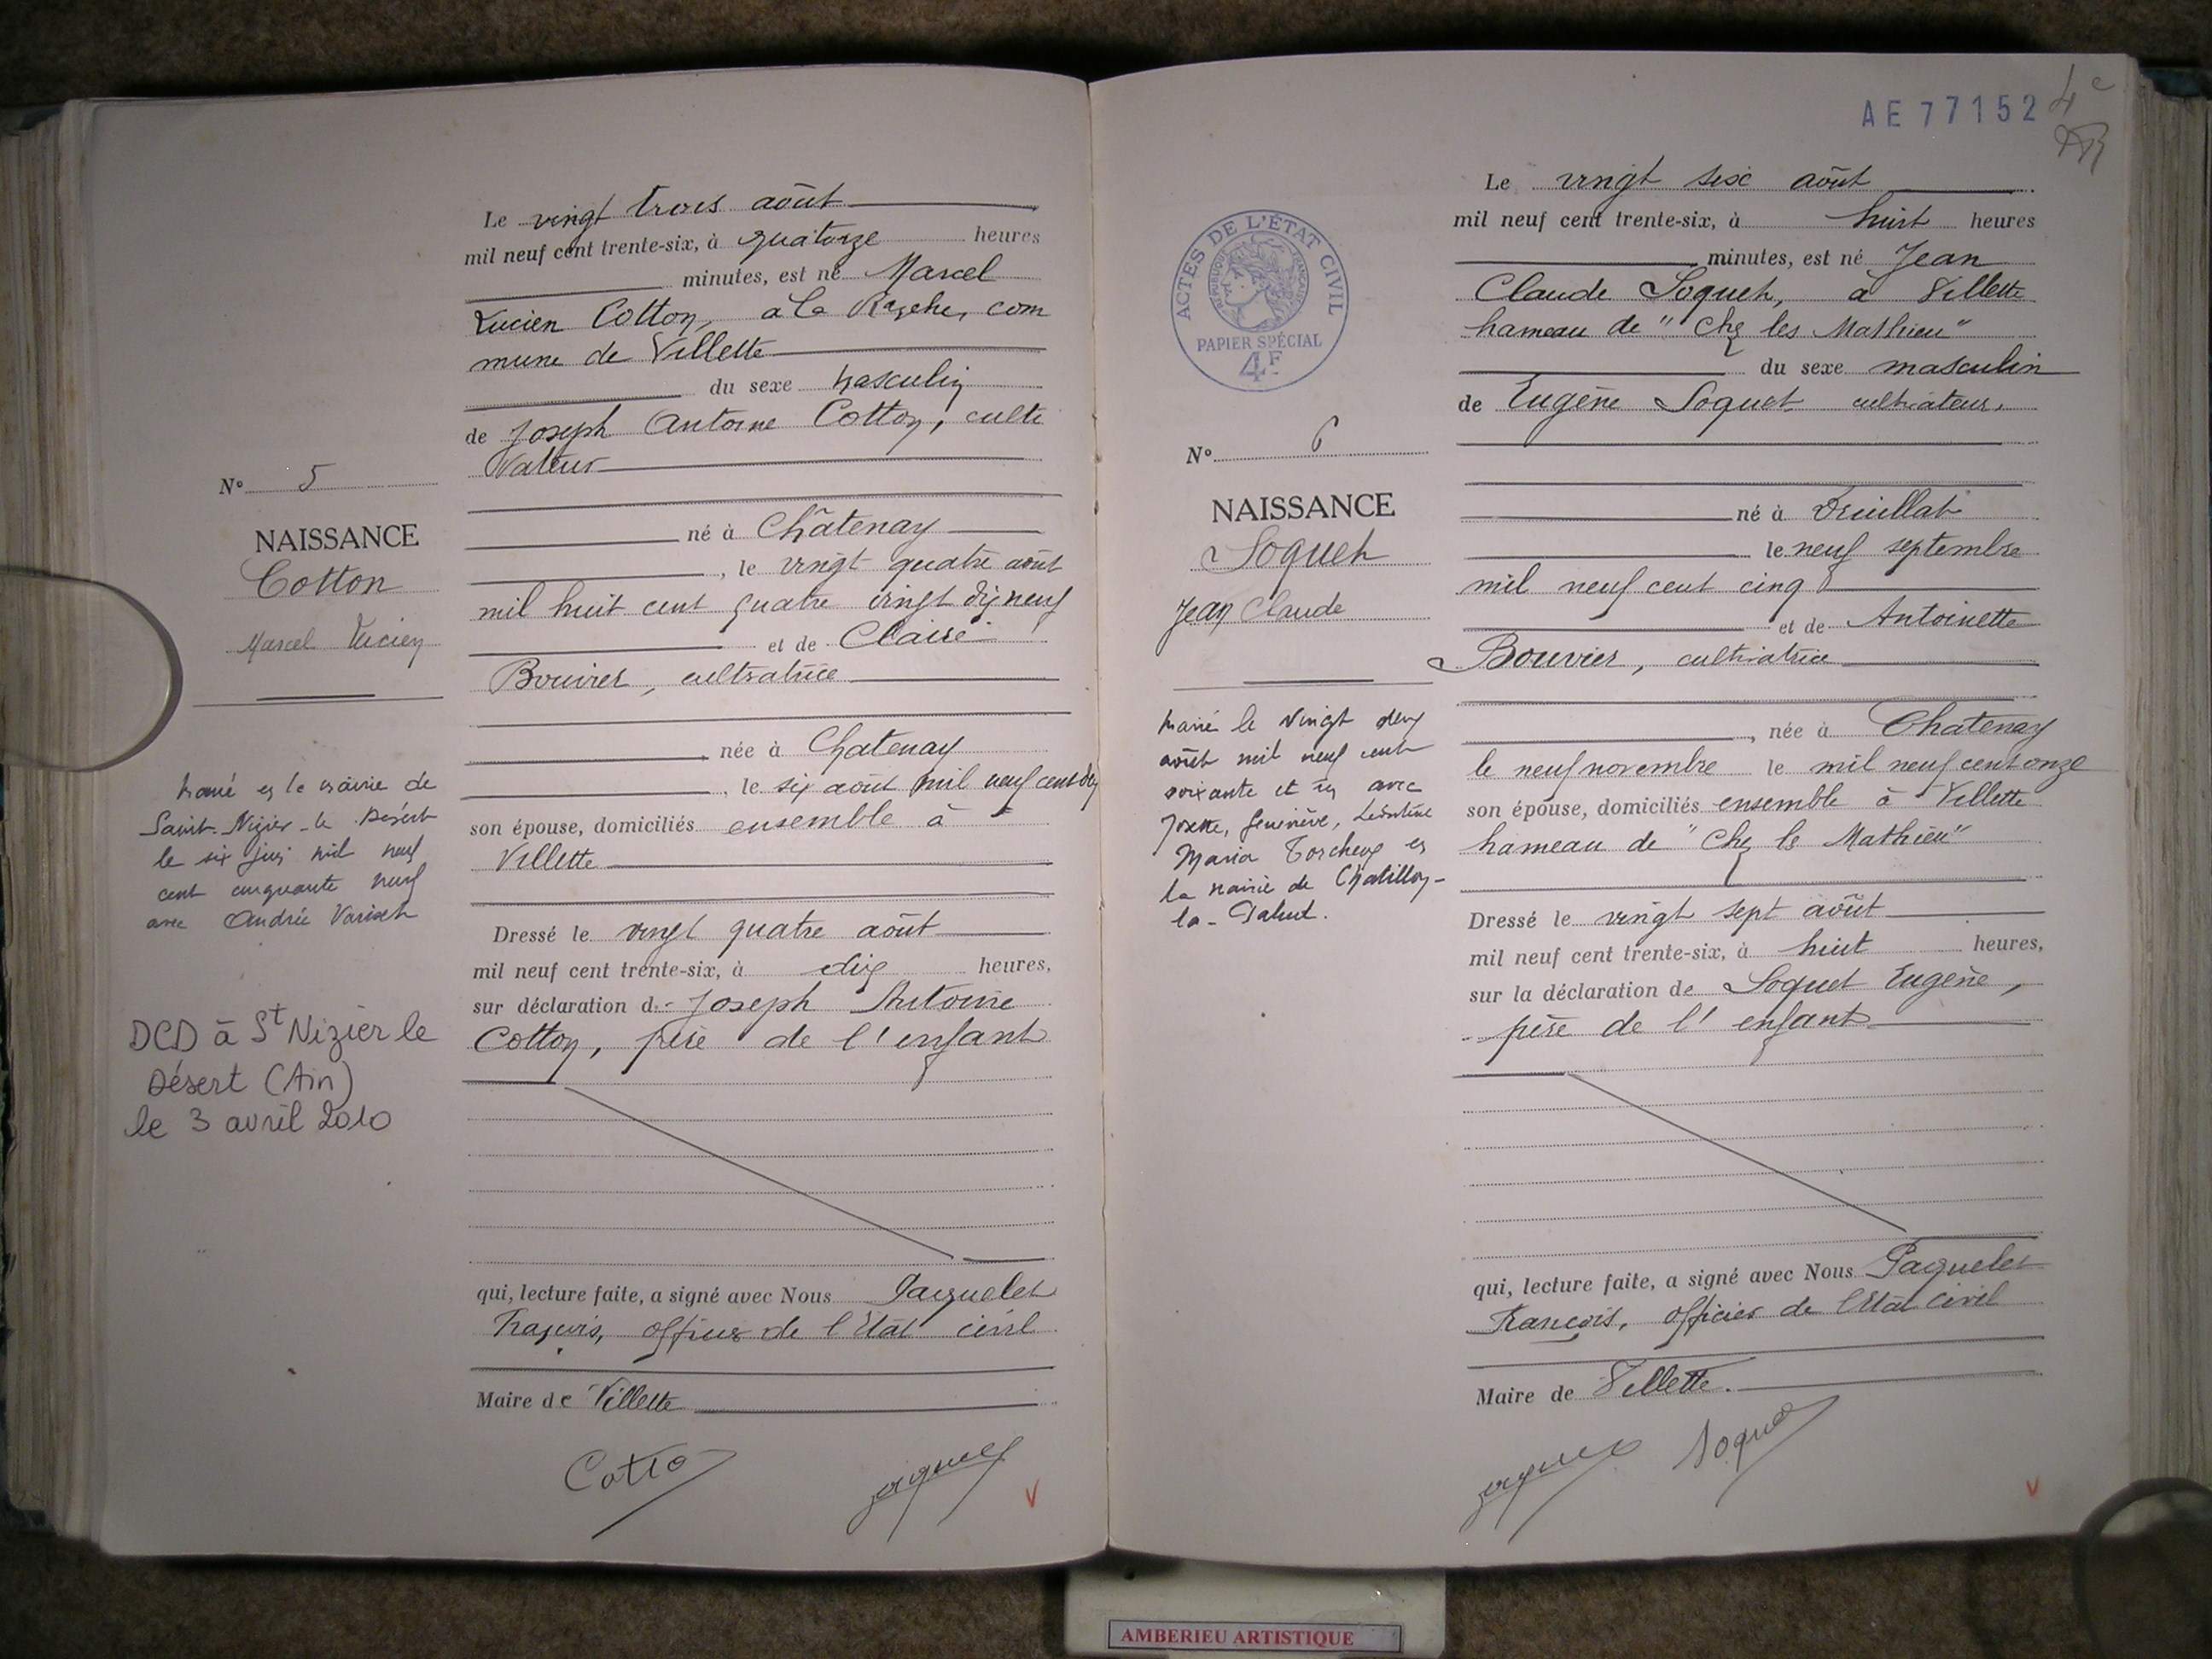 Le vingt trois août
mil neuf cent trente-six, à quatorze heures
minutes, est né Marcel
Lucien Cotton, à la com
mune de Villette
du sexe masculin
de Joseph Antoine Cotton, culti
vateur
N° 5
NAISSANCE
Cotton
Marcel Lucien
né à Châtenay
, le vingt quatre août
mil huit cent quatre vingt dix neuf
et de Claire
Bouvier, cultivatrice
née à Chatenay
, le six août mil neuf cent dix
son épouse, domiciliés ensemble à
Villette
Marié en la mairie de
Saint-Nizier-le Désert
le six juin mil neuf
cent cinquante neuf
avec Andrée
DCD à St Nizier le
Désert (Ain)
le 3 avril 2010
Dressé le vingt quatre août
mil neuf cent trente-six, à dix heures,
sur déclaration d. Joseph Antoine
Cotton, père de l'enfant
qui, lecture faite, a signé avec Nous Paquelet
François, officier de l'Etat civil
Maire de Villette
Cotto
V
AE 77152
Le vingt six août
mil neuf cent trente-six, à huit heures
minutes, est né Jean
Claude Soquet, à Villette
hameau de "Chez les Mathieu"
du sexe masculin
de Eugène Soquet cultivateur,
ACTES DE L'ÉTAT CIVIL
RÉPUBLIQUE FRANÇAISE
PAPIER SPÉCIAL
4F
N° 6
NAISSANCE
Soquet
Jean Claude
né à Druillat
le neuf septembre
mil neuf cent cinq
et de Antoinette
Bouvier, cultivatrice
, née à Chatenay
le neuf novembre le mil neuf cent onze
son épouse, domiciliés ensemble à Villette
hameau de "Chez les Mathieu"
Marié le vingt deux
août mil neuf cent
soixante et un avec
Josette, Geneviève, Léontine
Maria en
la mairie de Chatillon-
la-Palud.
Dressé le vingt sept août
mil neuf cent trente-six, à huit heures,
sur la déclaration de Soquet Eugène,
père de l'enfant
qui, lecture faite, a signé avec Nous Paquelet
François, officier de l'Etat civil
Maire de Villette.
Soquet
V
AMBERIEU ARTISTIQUE